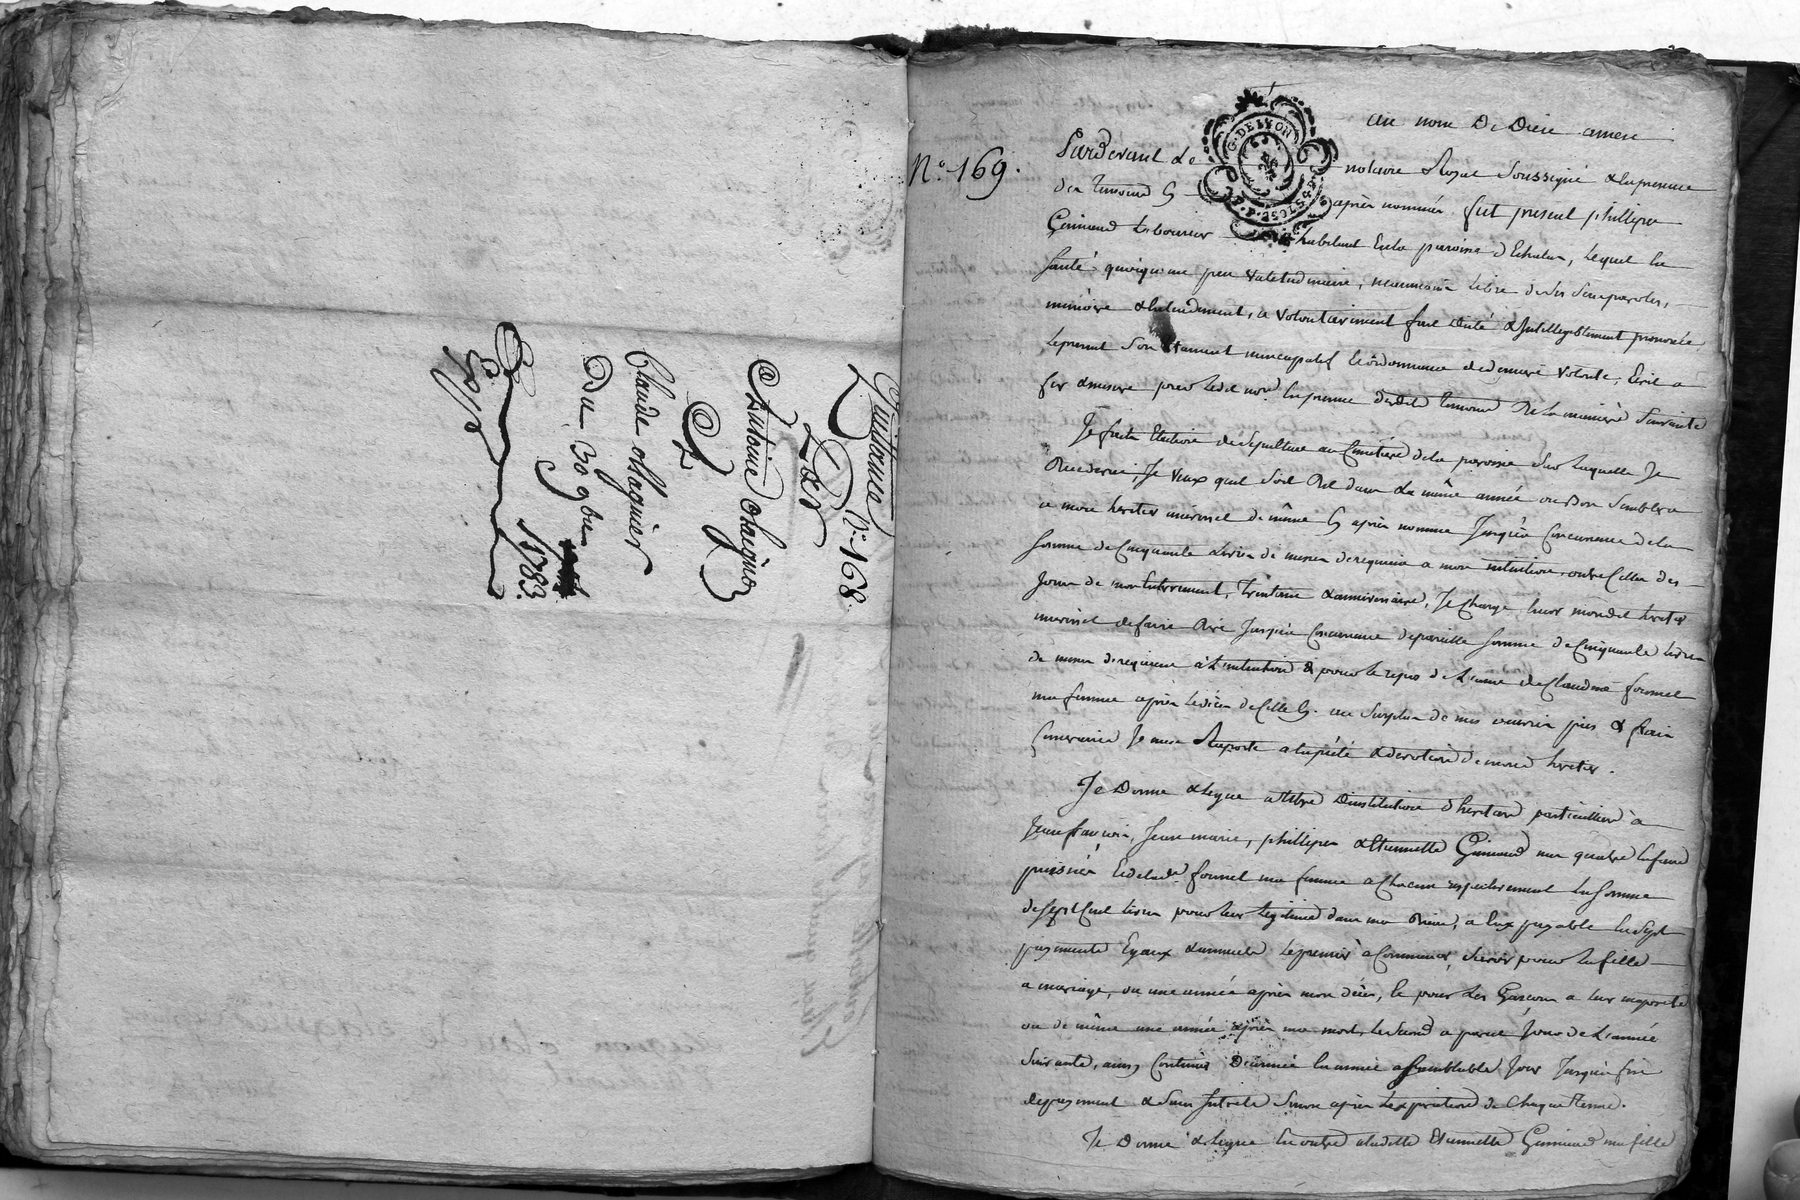 Quittance N.° 168.
Par
Antoine Chaigne
a
Claude Maguier
Du 30 9bre
1783.
N.° 169.
G. DE LYON
au nom De Dieu amen
Pardevant Le notaire Royal Soussigné & en presence
des temoins après nommés fut present phillipe
Gimaud Laboureur habitant En la paroisse d'Echalas, Lequel En
santé quoiqu'un peu valetudinaire, neanmoins Libre de ses Sens, paroles,
mémoire & Entendement, a volontairement fait dicté & Intelligiblement prononcé
Le present Son testament nuncupatif Et ordonnance de derniere volonté, Ecrit a
fur & mesure par Ledit no.re En presence desdits temoins De La maniere Suivante
Je fais Election de Sepulture au Cimetiere de la paroisse Sur Laquelle Je
Decederai, Je veux quil Soit Dit dans La même année ou Bon Semblera
a mon heritier universel de même après nommé Jusqu'a Concurrence de La
somme de Cinquante Livres de messes de requiem a mon intention, outre Celles des
Jours de mon Enterrement, trentaine & anniversaire, Je Charge, mondit heritier
universel de faire Dire Jusqu'a Concurrence de pareille somme de Cinquante Livres
de messes de requiem à L'intention & pour le repos de L'ame de Claudine fournel
ma femme après Le décès de Celle Cy. au Surplus de mes œuvres pies & frais
funeraires Je m'en Raporte a la pieté & devotion de mond. heritier.
Je Donne & Legue a titre D'institution d'heritiers particuliers à
Jean françois, Jean marie, phillipe & Etiennette Gimaud mes quatre Enfans
puisnés Et de lad. fournel ma femme a Chacun respectivement La somme
de Sept Cent Livres pour leur Legitime dans mes Biens, a Eux payable En Sept
payments Egaux & annuels Le premier à Commencer, Sçavoir pour La fille
a mariage, ou une année après mon décès, Et pour Les Garçons a leur majorité
ou de même une année après ma mort, Le Second a pareil Jour de L'année
Suivante, ainsy Continuer D'année En année a Semblable Jour Jusqu'a fin
de payment & Sans Interets Sinon après L'expiration de Chaque terme.
Je Donne & Legue En outre a ladite Etiennette Gimaud ma fille